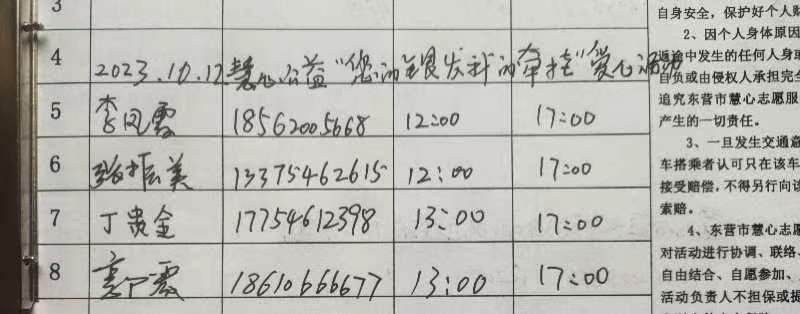 3
4 2023.10.12慧心公益“您的银发我的牵挂”爱心
5 李凤霞 18562005668 12:00 17:00
6 张振美 13375462615 12:00 17:00
7 丁贵金 17754612398 13:00 17:00
8 霞 18610666677 13:00 17:00
自身安全，保护好个人财
2、因个人身体原因
返途中发生的任何人身
自负或由侵权人承担完全
追究东营市慧心志愿服
产生的一切责任。
3、一旦发生交通意
车搭乘者认可只在该车
接受赔偿，不得另行向该
索赔。
4、东营市慧心志愿
对活动进行协调、联络、
自由结合、自愿参加、
活动负责人不担保或